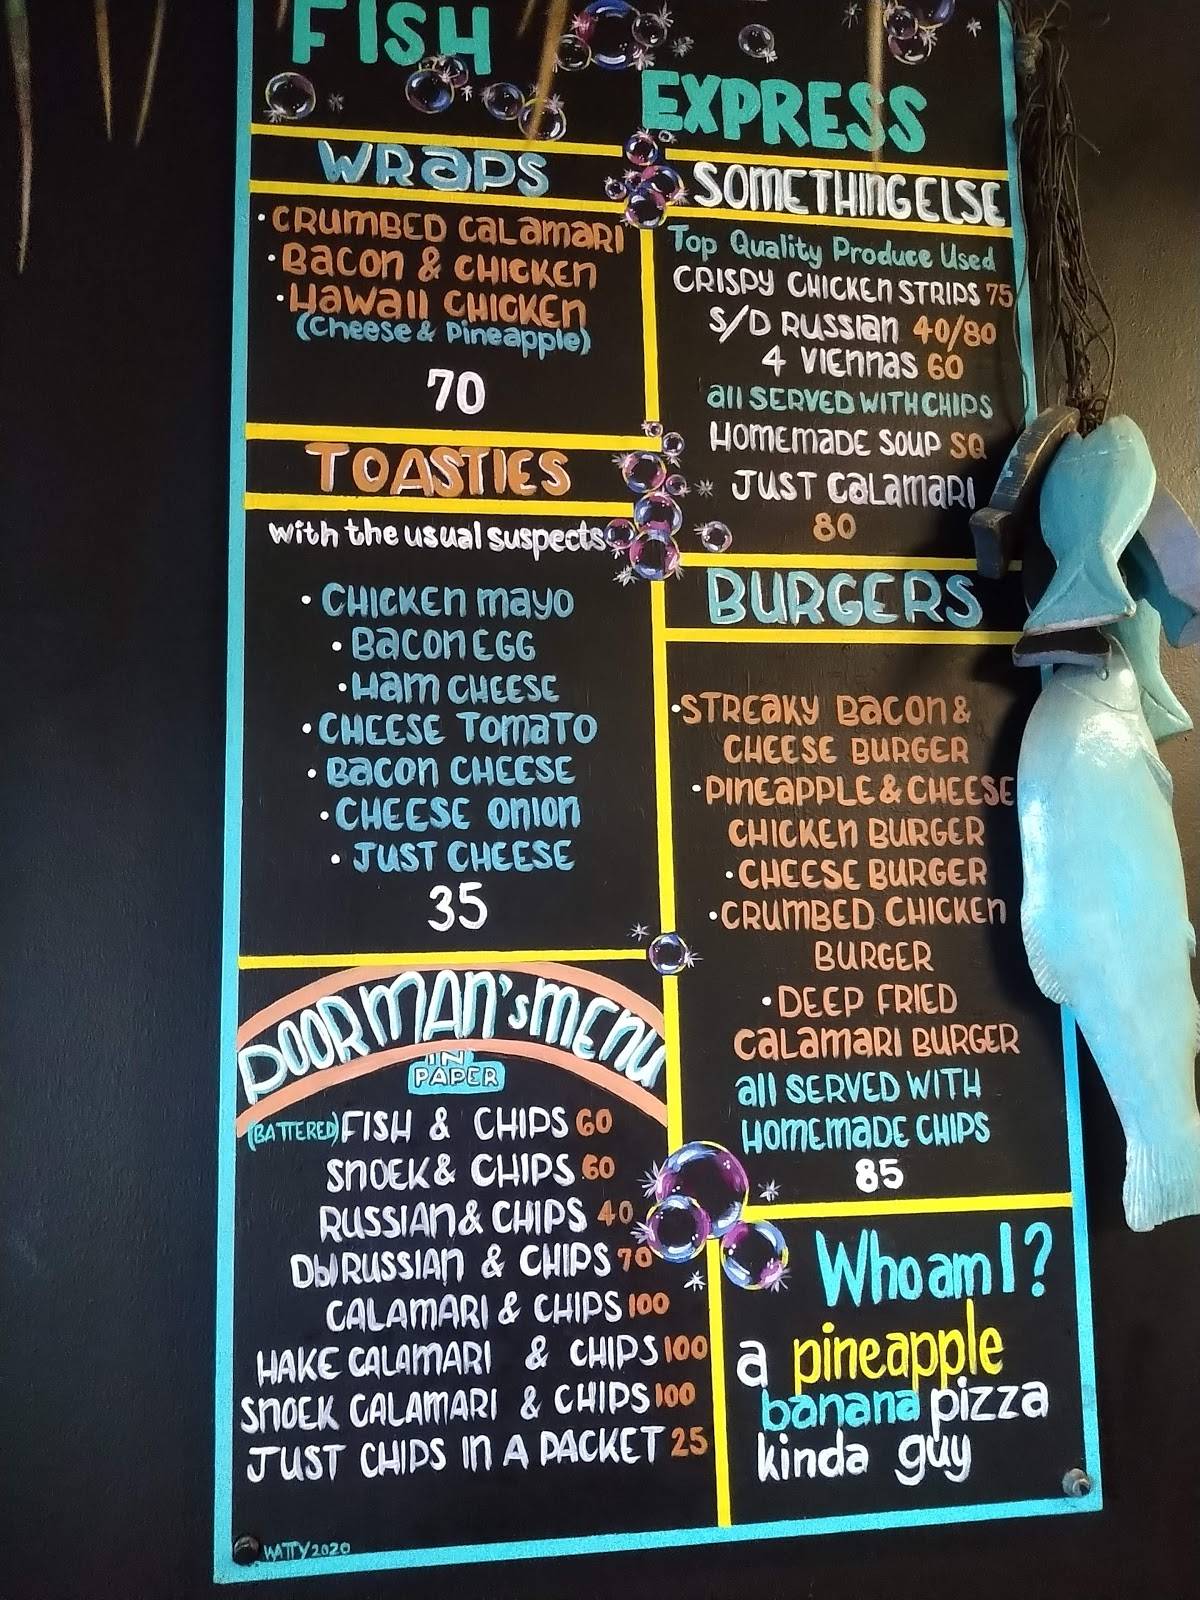 FISH
EXPRESS
WRaPS
• CRUMBED CaLamaRI
• Bacon & CHICKEN
• Hawaii CHICKEN
(Cheese & Pineapple)
70
TOASTIES
with the usual suspects
• CHICKEN mayo
• Bacon EGG
• Ham CHEESE
• CHEESE Tomato
• Bacon CHEESE
• CHEESE onion
• JUST CHEESE
35
DOORMAN's MENU
IN
PAPER
(BATTERED) FISH & CHIPS 60
SNOEK & CHIPS 60
RUSSIAN & CHIPS 40
Dbl RUSSIAN & CHIPS 70
CALAMARI & CHIPS 100
HAKE CALAMARI & CHIPS 100
SNOEK CALAMARI & CHIPS 100
JUST CHIPS IN A PACKET 25
WATTY 2020
SOMETHING ELSE
Top Quality Produce Used
CRISPY CHICKEN STRIPS 75
S/D RUSSIAN 40/80
4 VIENNAS 60
all SERVED WITH CHIPS
HOMEMADE SOUP SQ
JUST CALAMARI
80
BURGERS
• STREAKY BACON &
CHEESE BURGER
• PINEAPPLE & CHEESE
CHICKEN BURGER
• CHEESE BURGER
• CRUMBED CHICKEN
BURGER
• DEEP FRIED
CaLamaRI BURGER
all SERVED WITH
HOMEMADE CHIPS
85
Who am I?
a pineapple
banana pizza
kinda guy